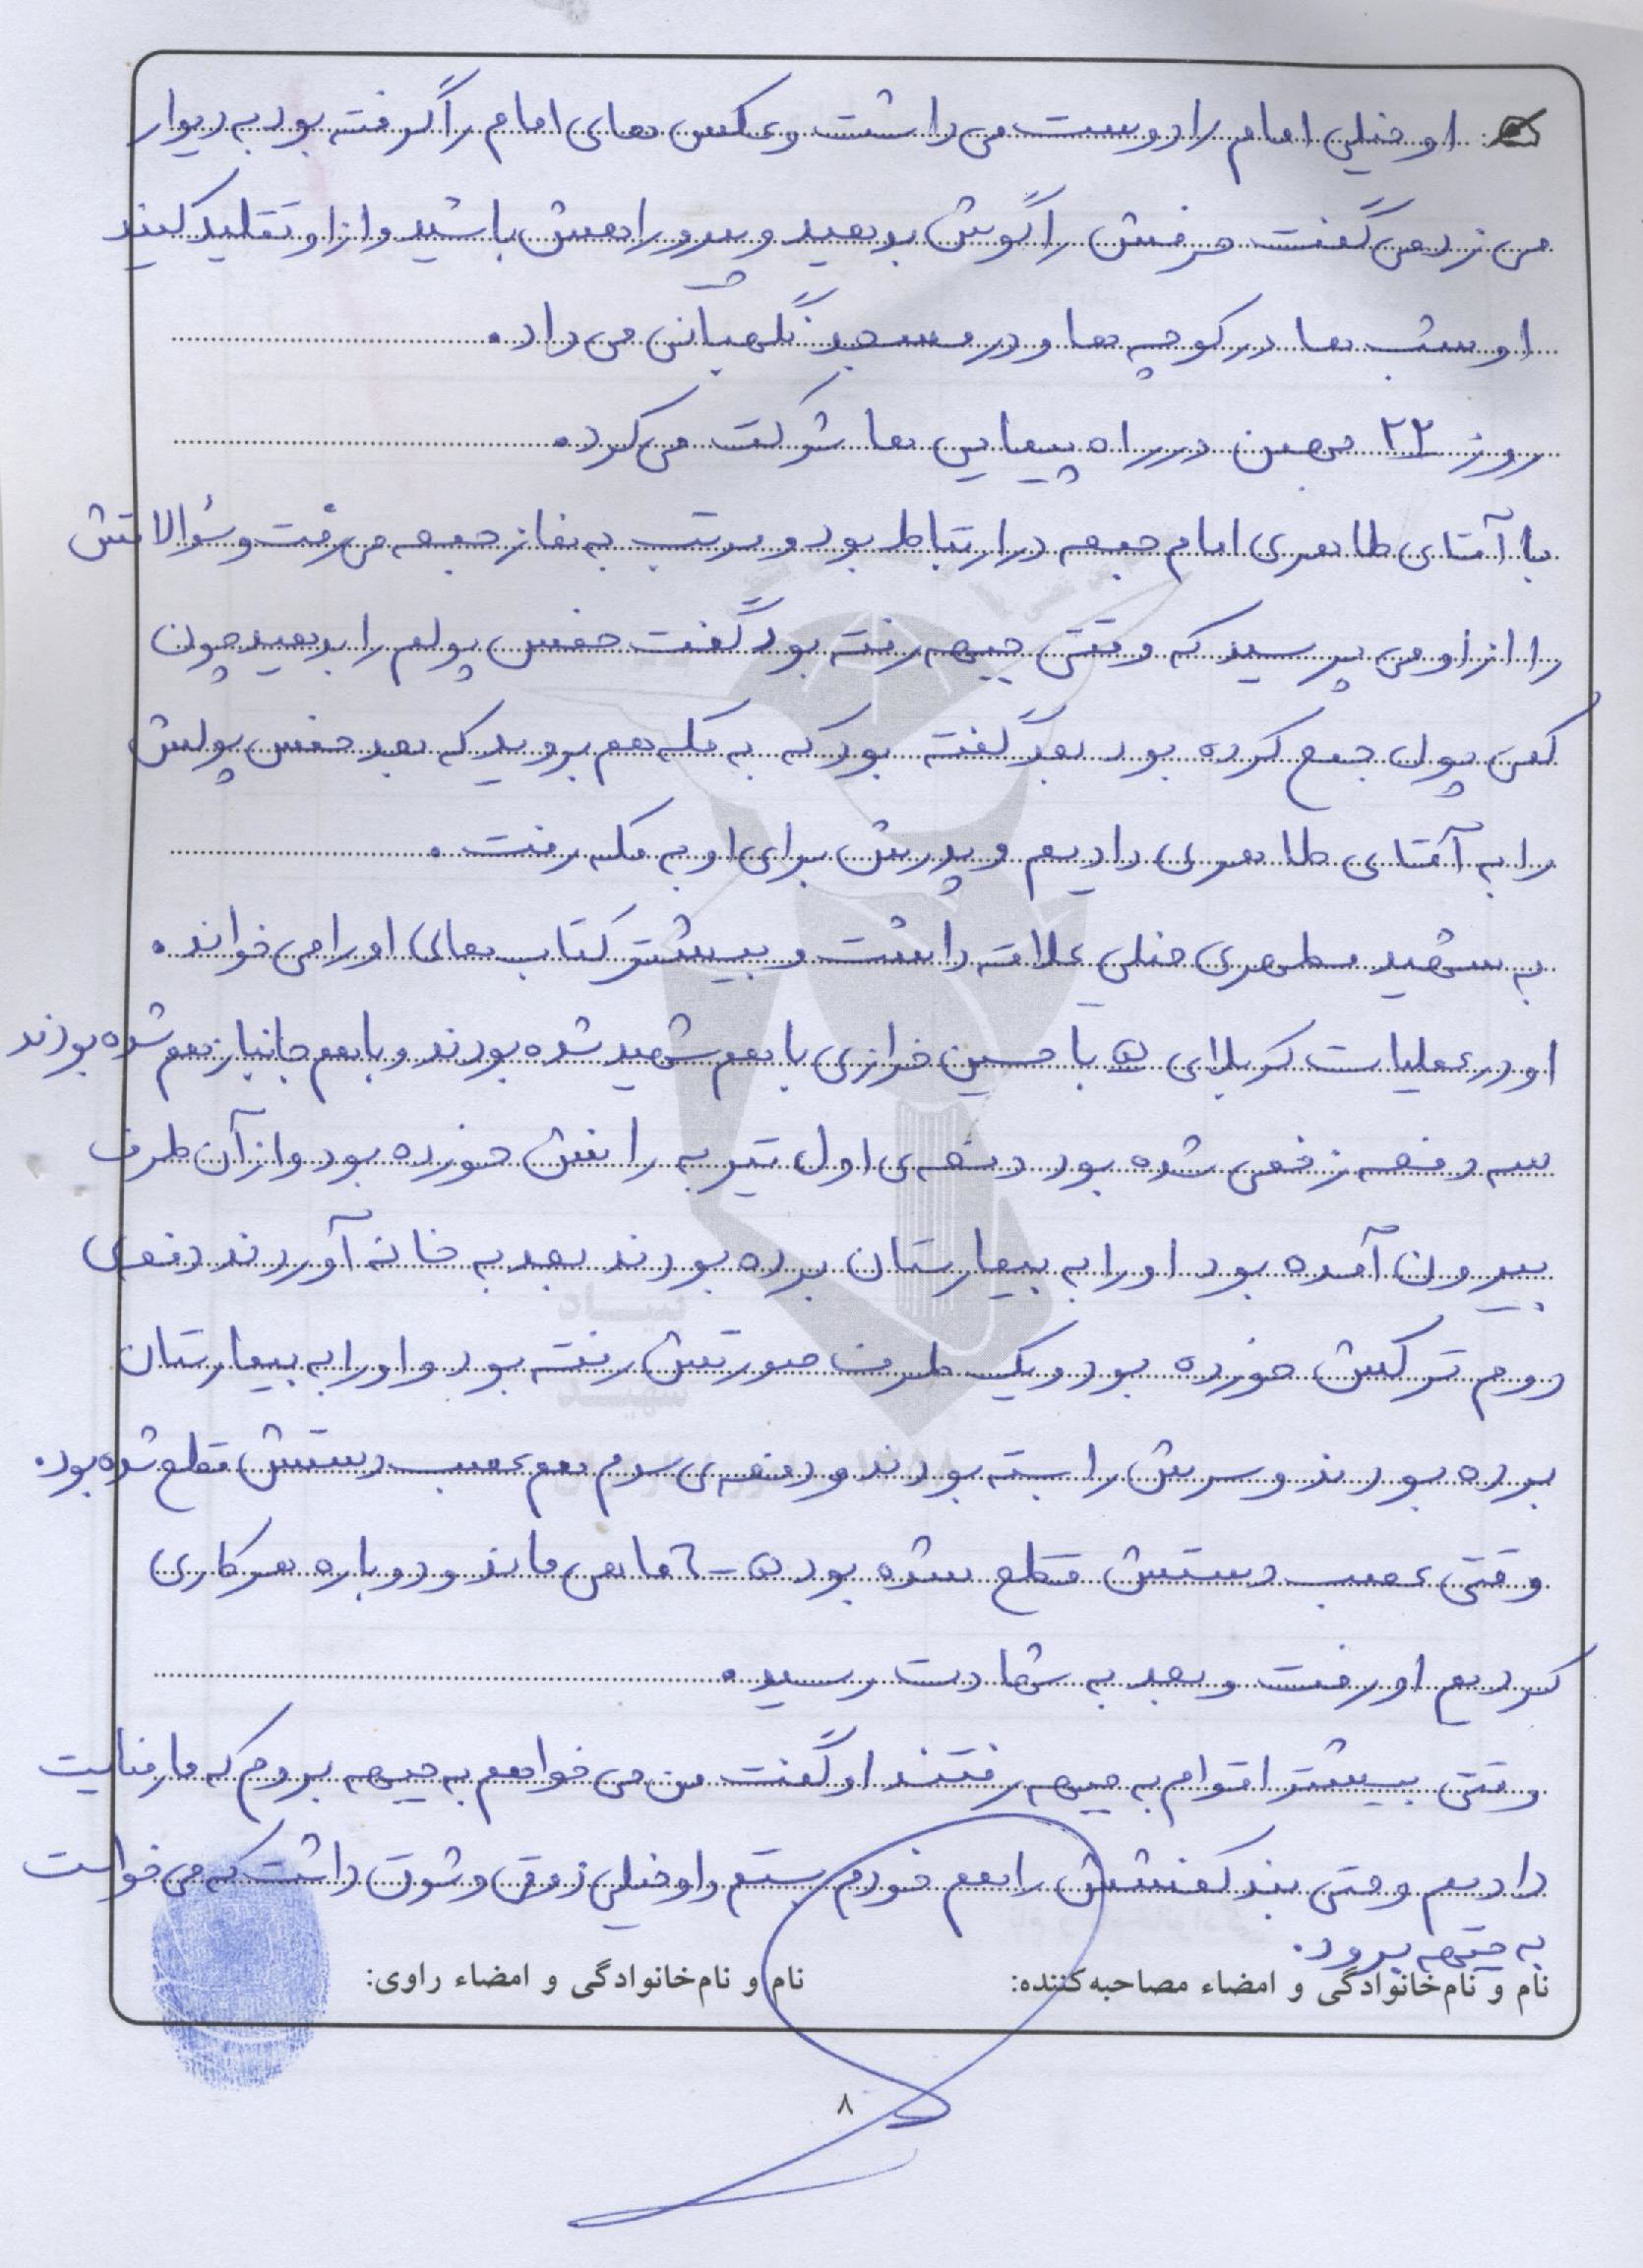 او خیلی امام را دوست می داشت و عکس های امام را گرفته بود به دیوار
می زد می گفت حرفش را گوش بدهید و پیرو راهش باشید و از او تقلید کنید
او شب ها در کوچه ها و در مسجد نگهبانی می داد.
روز ۲۲ بهمن در راه پیمایی ها شرکت می کرد.
با آقای طاهری امام جمعه در ارتباط بود و مرتب به نماز جمعه می رفت و سؤالاتش
را از او می پرسید که وقتی جبهه رفته بود گفت خمس پولم را بدهید چون
کمی پول جمع کرده بود بعد گفته بود که به مکه هم بروید که بعد خمس پولش
را به آقای طاهری دادیم و پدرش برای او به مکه رفت.
به شهید مطهری خیلی علاقه داشت و بیشتر کتاب های او را می خواند.
او در عملیات کربلای ۵ با حسین خرازی با هم شهید شده بودند و با هم جانباز هم شده بودند
سه دفعه زخمی شده بود دفعه ی اول تیر به رانش خورده بود و از آن طرف
بیرون آمده بود او را به بیمارستان برده بودند بعد به خانه آوردند دفعه ی
دوم ترکش خورده بود و یک طرف صورتش رفته بود و او را به بیمارستان
برده بودند و سرش را بسته بودند و دفعه ی سوم هم عصب دستش قطع شده بود.
وقتی عصب دستش قطع شده بود ۵-۶ ماهی ماند و دوباره هر کاری
کردیم او رفت و بعد به شهادت رسید.
وقتی بیشتر اقوام به جبهه رفتند او گفت من می خواهم به جبهه بروم که ما رضایت
دادیم و حتی بند کفشش را هم خودم بستم و او خیلی ذوق و شوق داشت که می خواست
به جبهه برود.
نام و نام‌خانوادگی و امضاء مصاحبه‌کننده: نام و نام‌خانوادگی و امضاء راوی:
۸